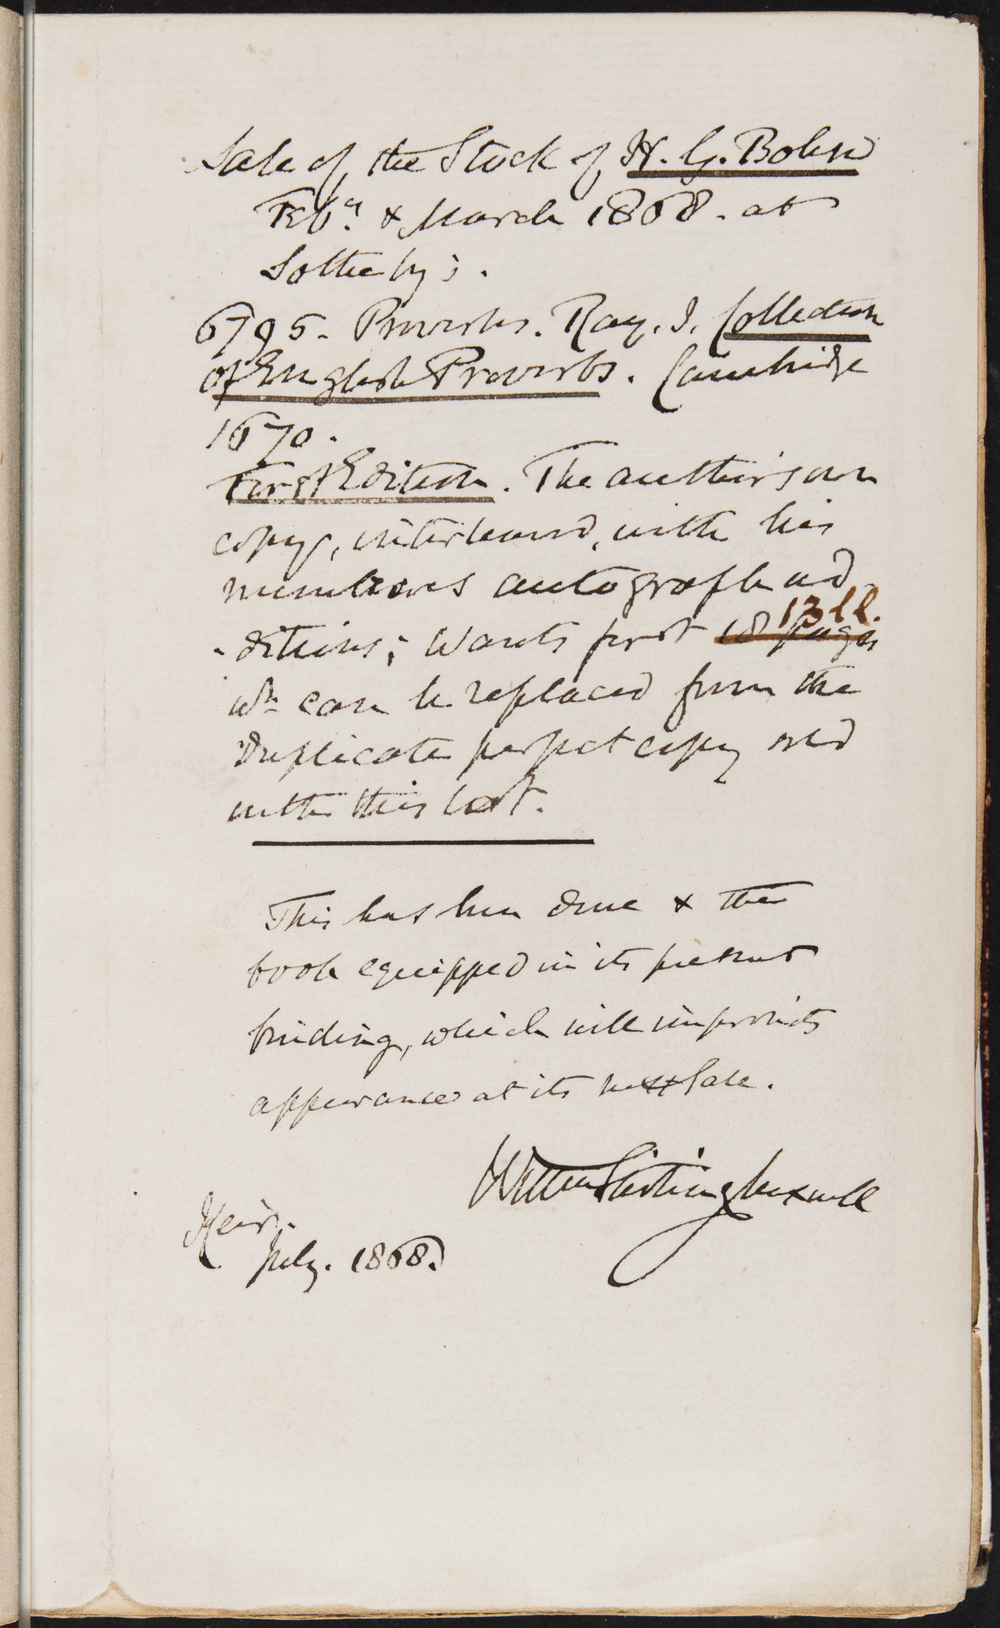 Sale of the Stock of H. G. Bohn
Feby. & March 1868. at
Sotheby's.
6795. Proverbs. Ray, J. Collection
of English Proverbs. Cambridge
1670.
First Edition. The author's own
copy, interleaved, with his
numerous autograph ad-
-ditions; wants first 18 pages 13 ll.
wh can be replaced from the
Duplicate perfect copy sold
with this lot.
This has been done & the
book equipped in its present
binding, which will improve its
appearance at its next sale.
William Stirling Maxwell
Keir.
July. 1868.